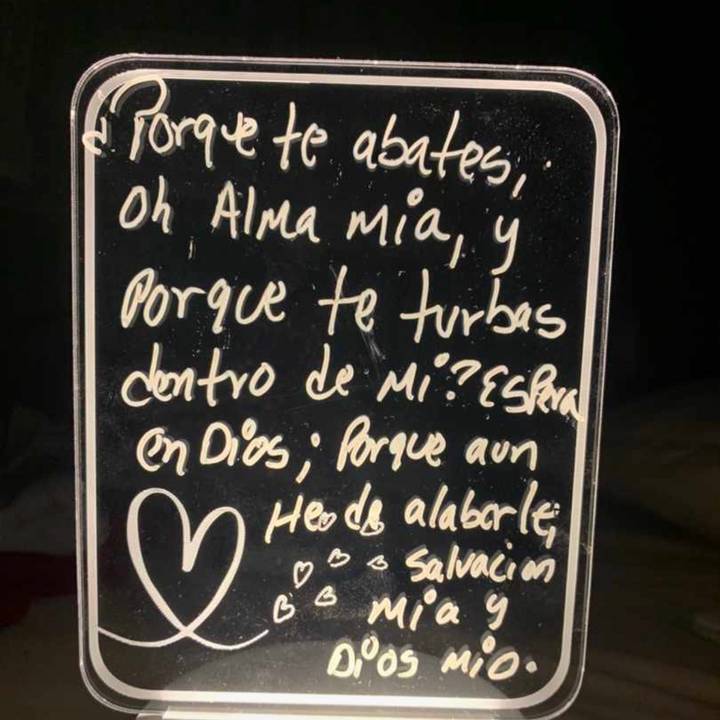 ¿Porque te abates,
oh Alma mía, y
Porque te turbas
dentro de Mí? Espera
en Dios; Porque aun
He de alabarle;
Salvacion
mia y
Dios mio.